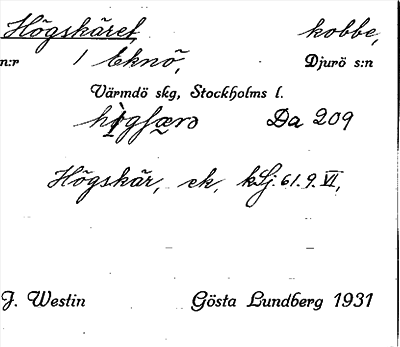 Högskäret, kobbe,
n:r 1 Eknö, Djurö s:n
Värmdö skg, Stockholms l.
Da 209
Högskär, ek, kLj. 61. 9. VI,
J. Westin Gösta Lundberg 1931